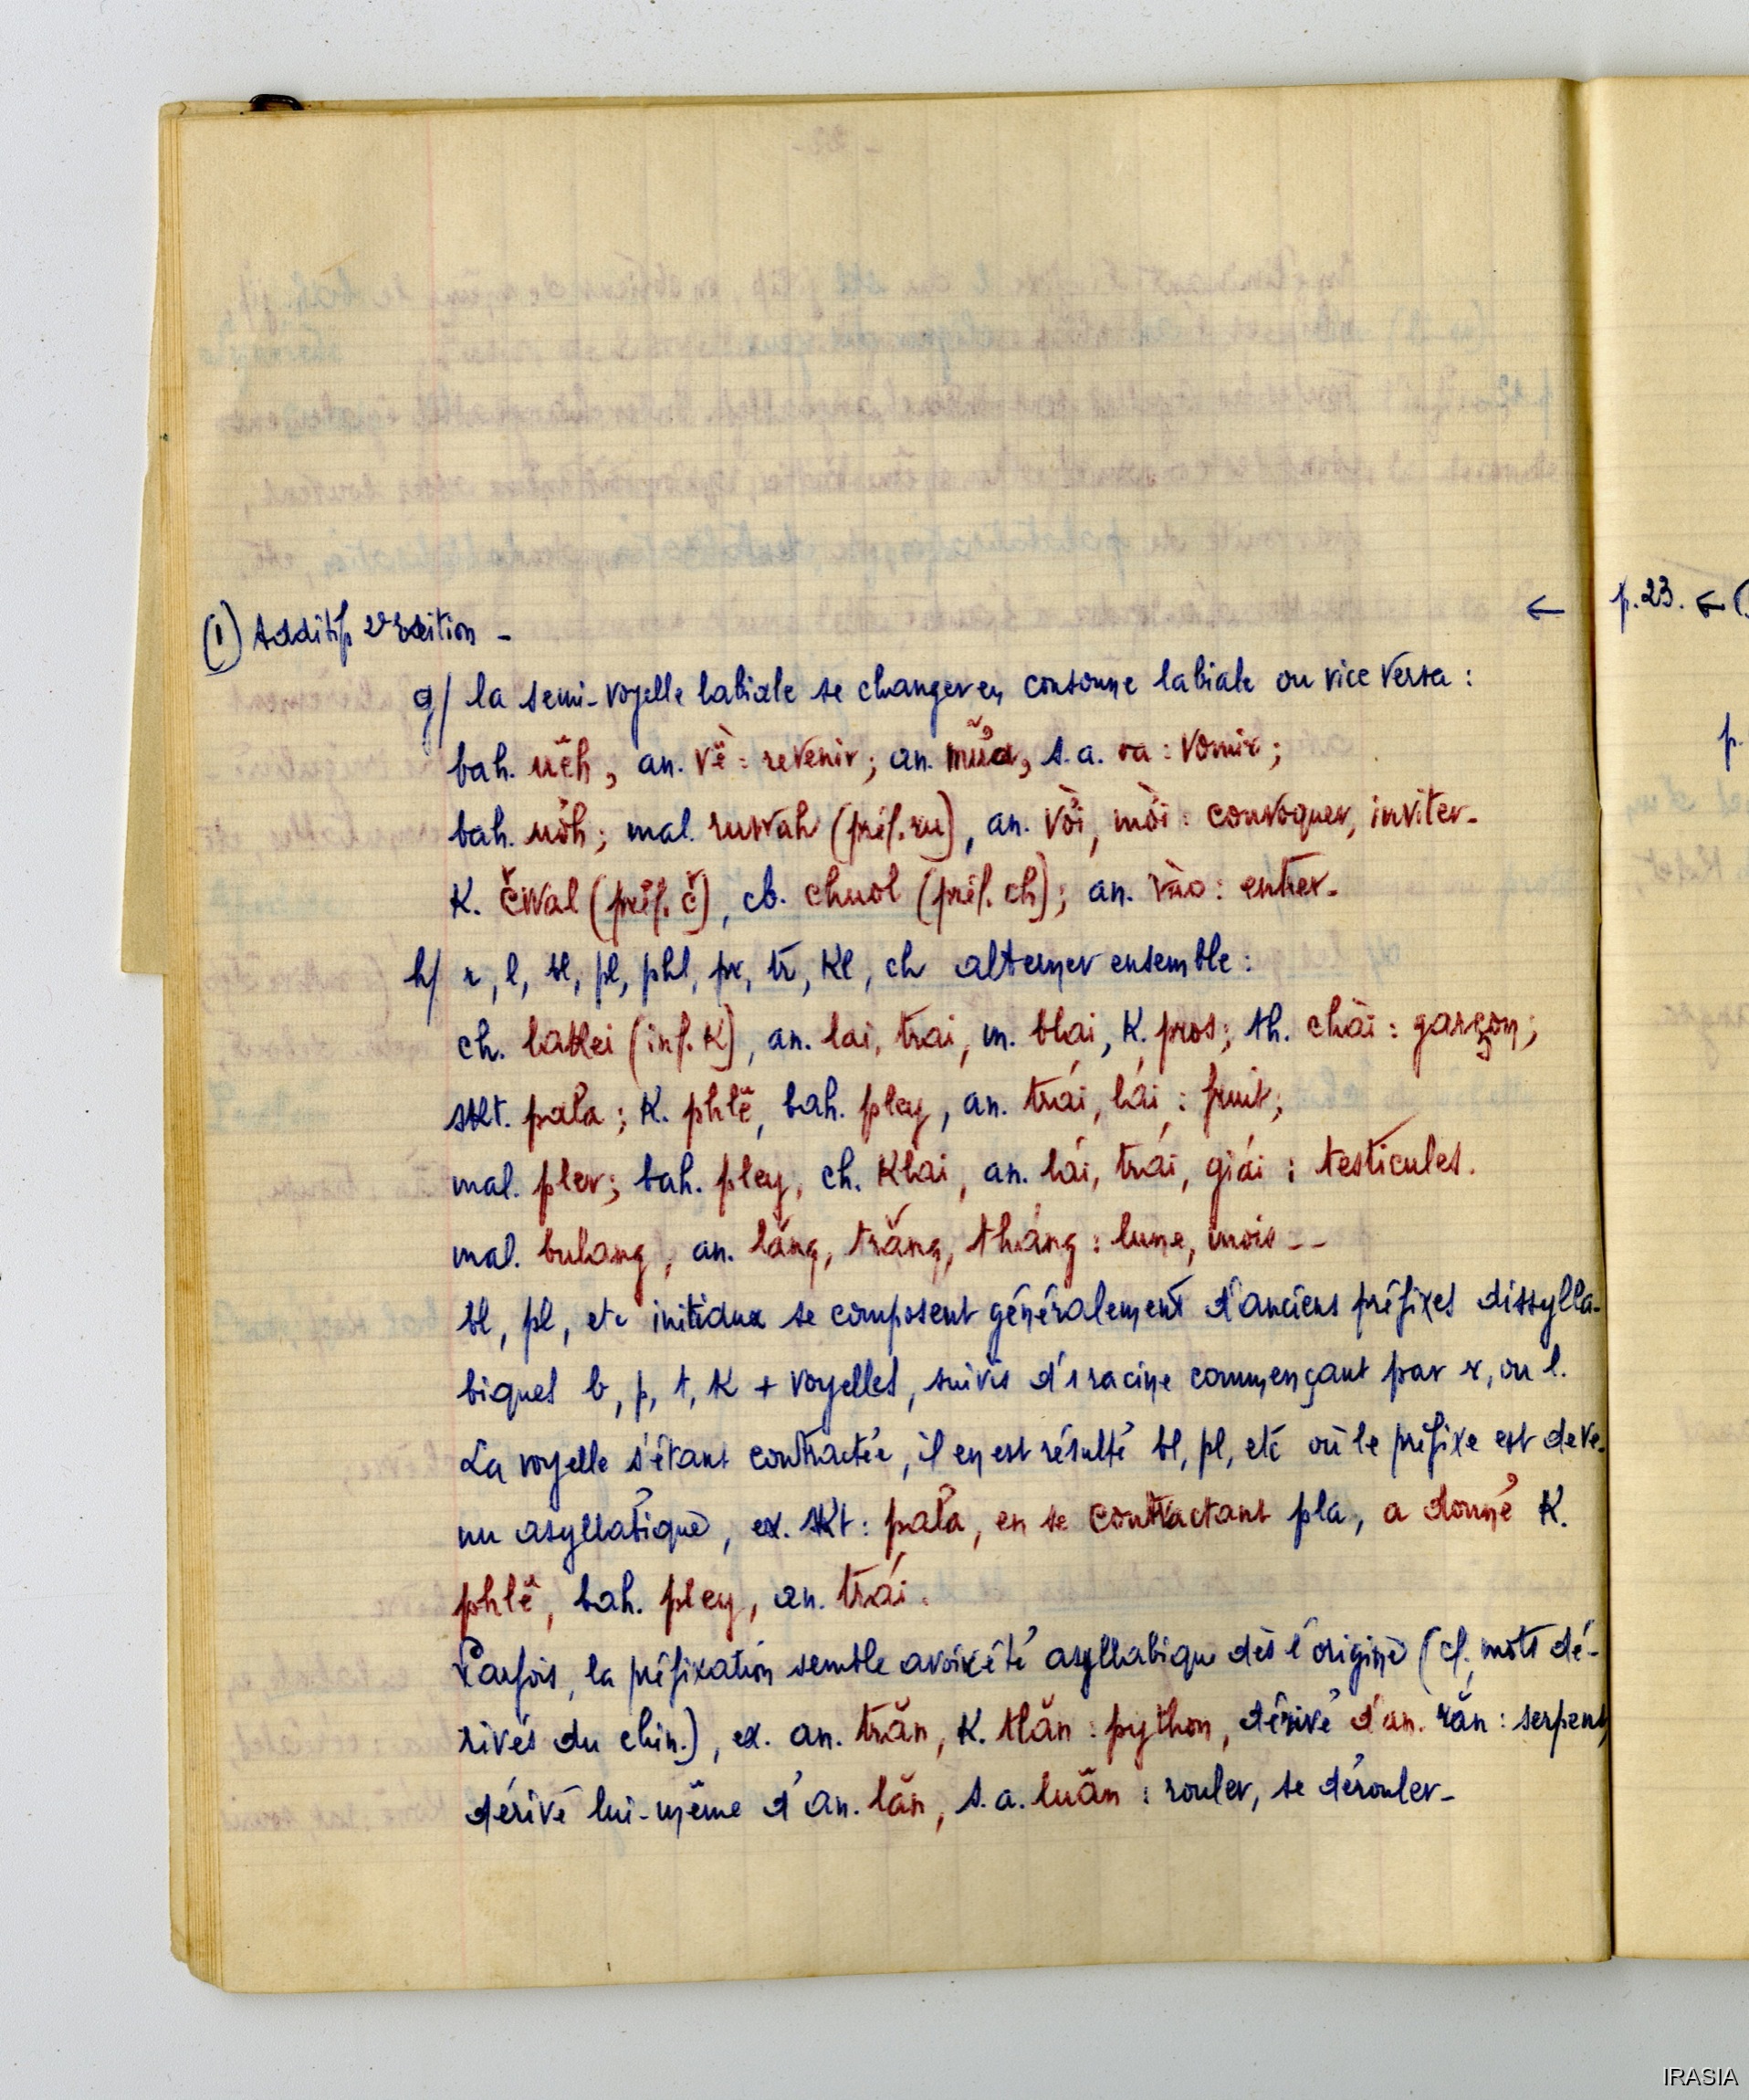 ← p.23. ← (
(1) Additif 2e édition -
g/ la semi-voyelle labiale se changer en consonne labiale ou vice versa :
bah. uĕh, an. về : revenir ; an. mửa, s.a. va : vomir ;
bah. uŏh ; mal. ruwah (préf. ru), an. vời, mời : convoquer, inviter -
K. čwal (préf. č), cb. chuol (préf. ch) ; an. vào : entrer -
h/ r, l, bl, pl, phl, pr, tr, Kl, ch alterner ensemble :
ch. lakei (inf. K), an. lai, trai, m. blai, K. pros ; th. chài : garçon ;
skt. pala ; K. phlĕ, bah. pley, an. trái, lái : fruit ;
mal. pler ; bah. pley, ch. Klai, an. lái, trái, giái : testicules.
mal. bulang, an. lăng, trăng, tháng : lune, mois --
bl, pl, etc initiaux se composent généralement d'anciens préfixes dissylla-
biques b, p, t, K + voyelles, suivis d'1 racine commençant par r, ou l.
La voyelle s'étant contractée, il en est résulté bl, pl, etc où le préfixe est deve-
nu asyllabique, ex. skt : pala, en se contractant pla, a donné K.
phlĕ, bah. pley, an. trái.
Parfois, la préfixation semble avoir été asyllabique dès l'origine (cf. mots dé-
rivés du chin.), ex. an. trăn, K. tlăn : python, dérivé d'an. răn : serpent,
dérivé lui-même d'an. lăn, s.a. luăn : rouler, se dérouler -
p.
IRASIA